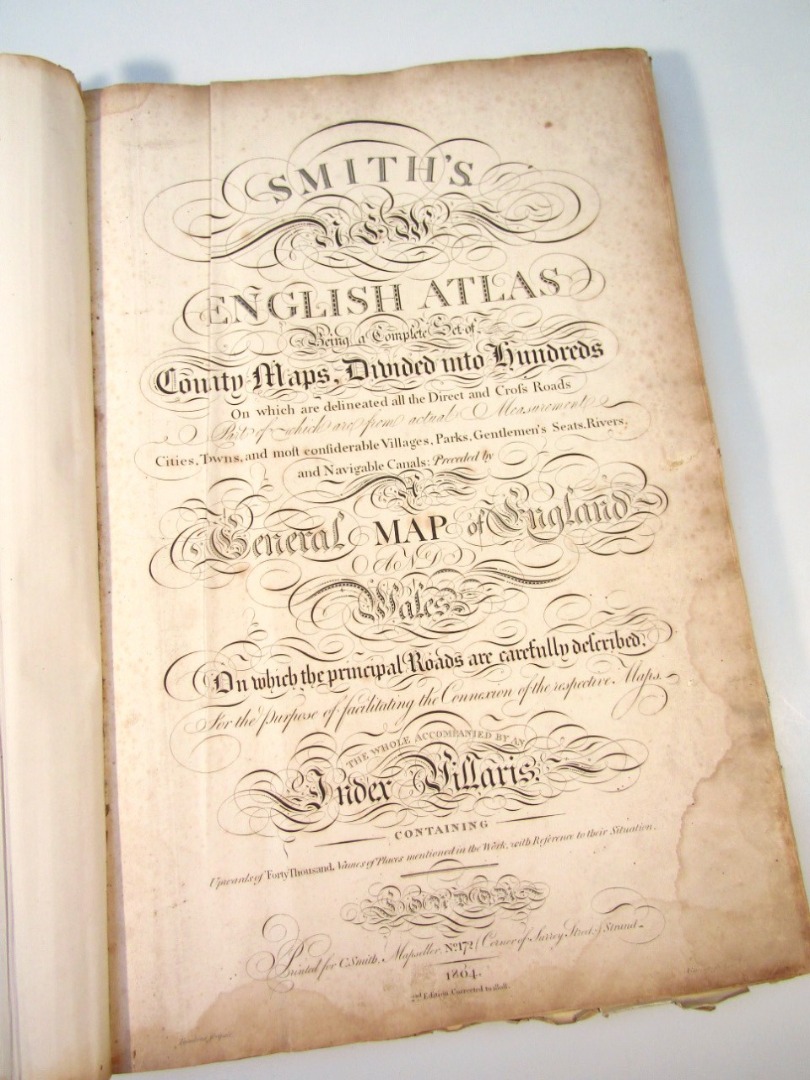 SMITH'S
NEW
ENGLISH ATLAS
Being a Complete Set of
County Maps, Divided into Hundreds
On which are delineated all the Direct and Croſs Roads
Part of which are from actual Measurement
Cities, Towns, and moſt conſiderable Villages, Parks, Gentlemen's Seats, Rivers,
and Navigable Canals: Preceded by
A
General MAP of England
AND
Wales
On which the principal Roads are carefully deſcribed,
For the Purpose of facilitating the Connexion of the respective Maps.
THE WHOLE ACCOMPANIED BY AN
Index Villaris,
CONTAINING
Upwards of Forty Thousand Names of Places mentioned in the Work, with Reference to their Situation.
LONDON
Printed for C. Smith, Mapseller, No. 172 (Corner of Surrey Street) Strand
1804.
2nd Edition Corrected to